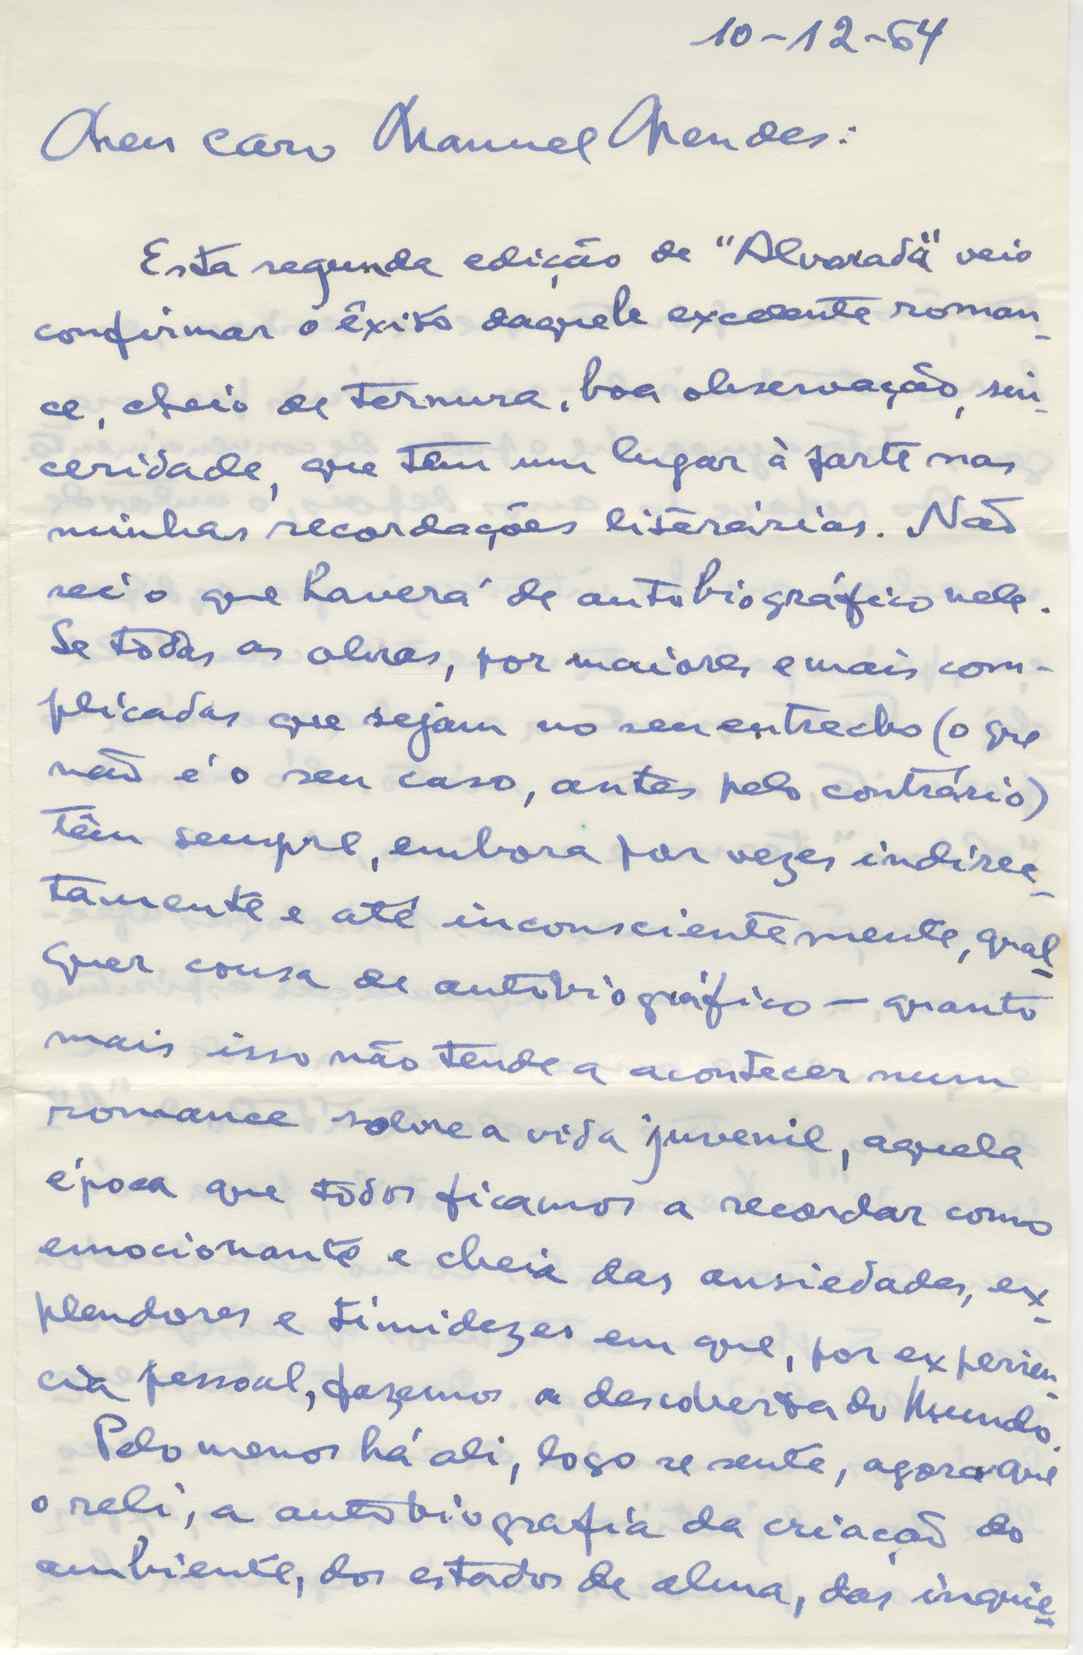 10-12-64
Meu caro Manuel Mendes:
Esta segunda edição de "Alvorada" veio
confirmar o êxito daquele excelente roman-
ce, cheio de ternura, boa observação, sin-
ceridade, que tem um lugar à parte nas
minhas recordações literárias. Não
sei o que haverá de autobiográfico nele.
Se todas as obras, por maiores e mais com-
plicadas que sejam no seu entrecho (o que
não é o seu caso, antes pelo contrário)
têm sempre, embora por vezes indirec-
tamente e até inconscientemente, qual-
quer cousa de autobiográfico — quanto
mais isso não tende a acontecer num
romance sobre a vida juvenil, aquela
época que todos ficamos a recordar como
emocionante e cheia das ansiedades, ex-
plendores e timidezes em que, por experien-
cia pessoal, fazemos a descoberta do Mundo.
Pelo menos há ali, logo se sente, agora que
o reli, a autobiografia da criação do
ambiente, dos estados de alma, das inquie-